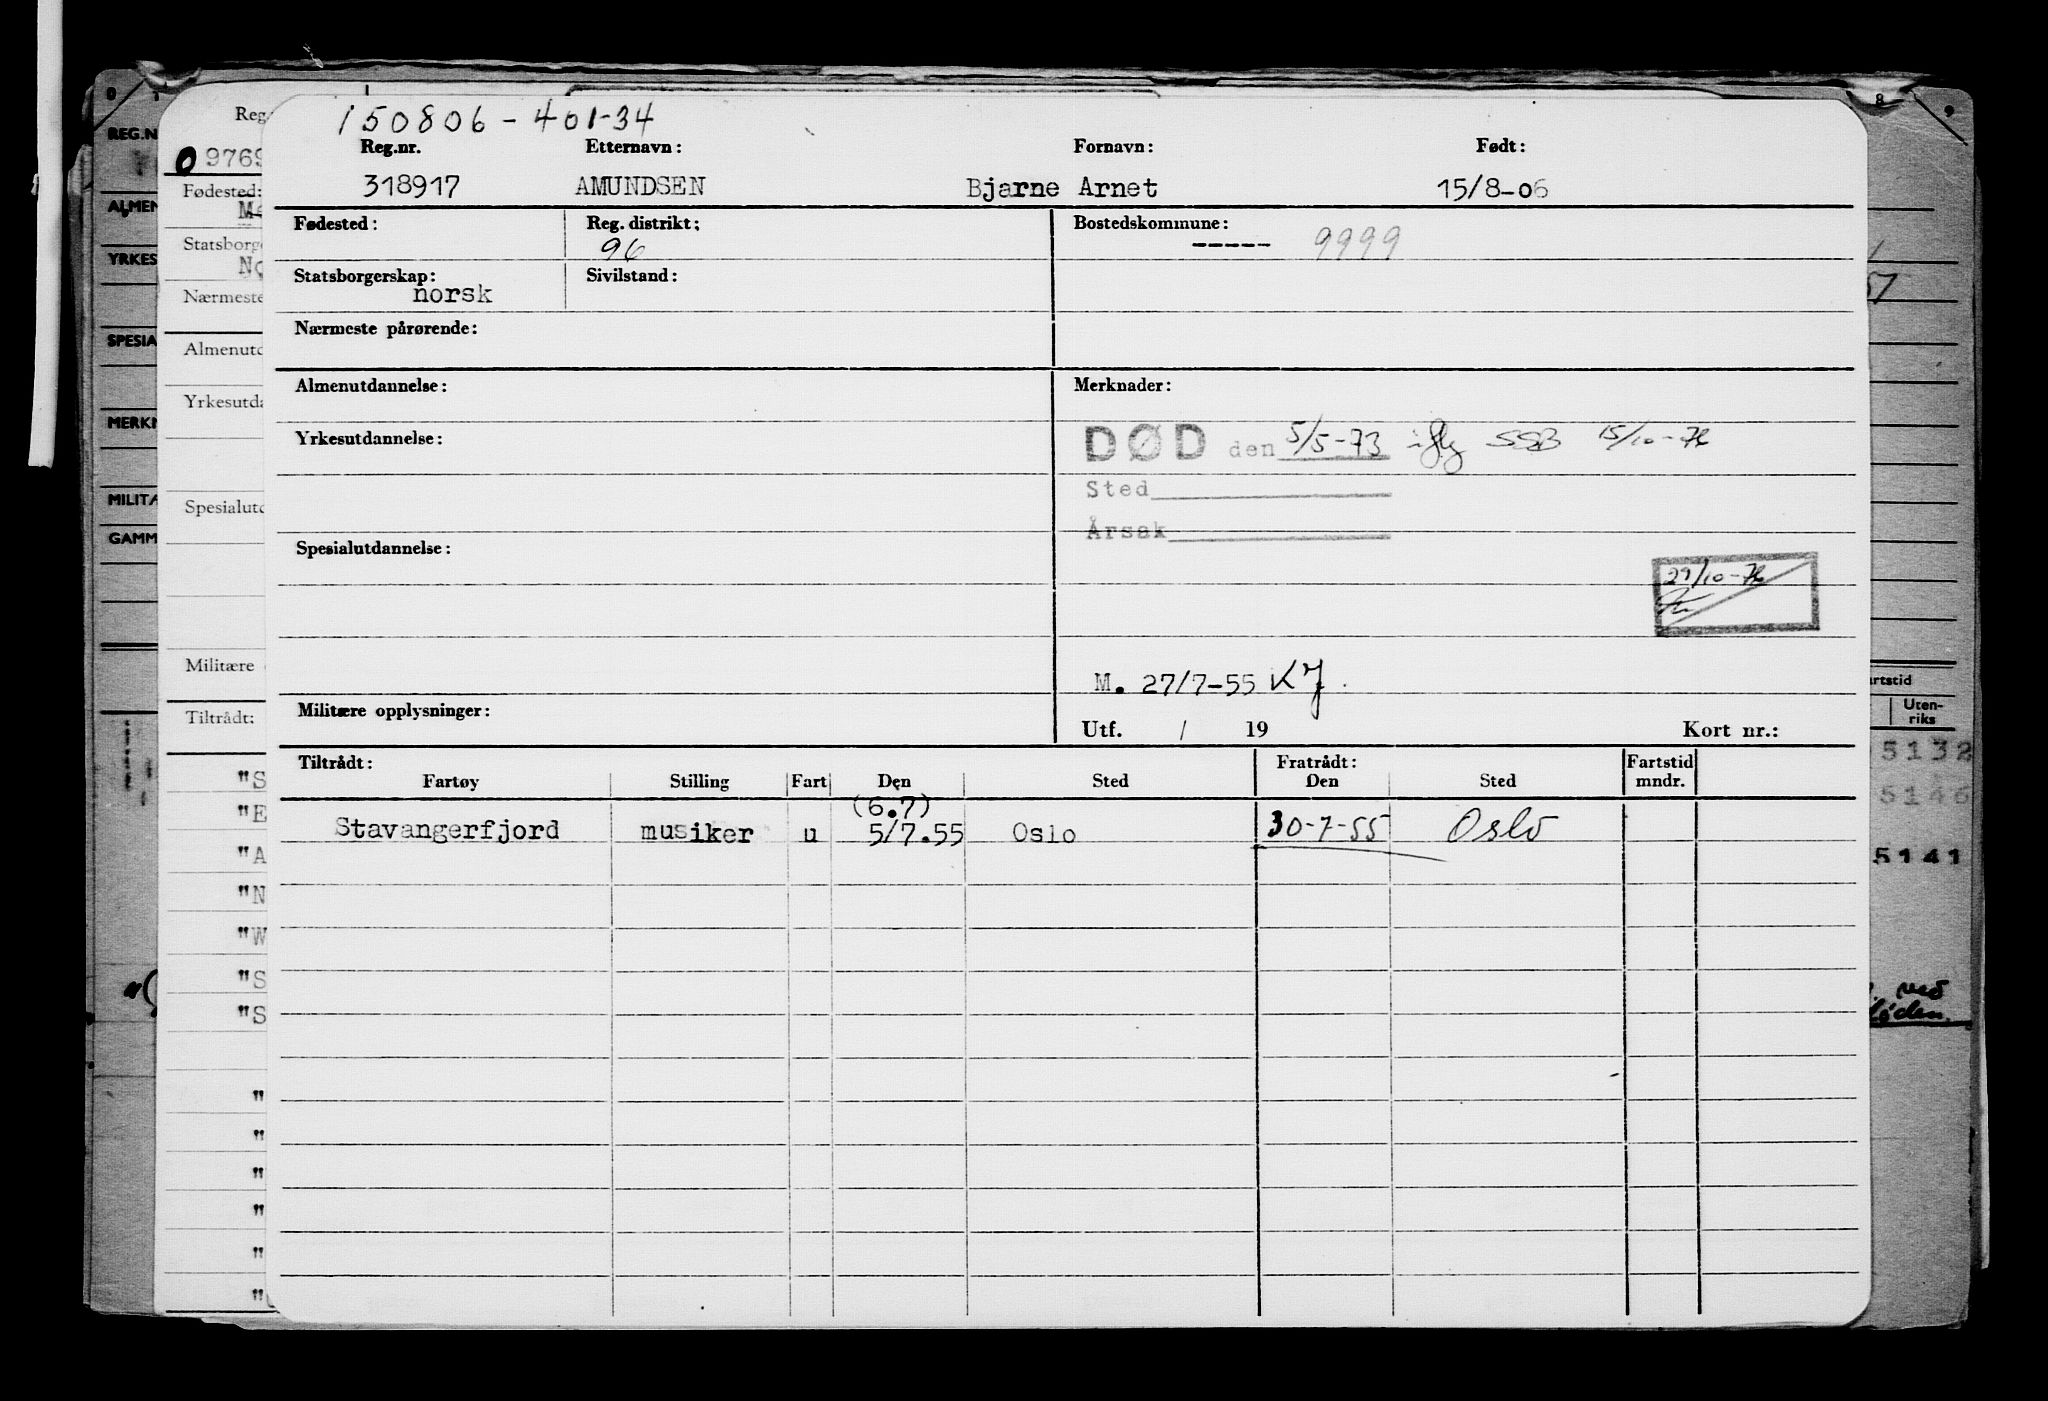 150806-401-34
Reg.nr. Etternavn: Fornavn: Født:
318917 AMUNDSEN Bjarne Arnet 15/8-06
Fødested: Reg. distrikt: Bostedskommune:
96 ----- 9999
Statsborgerskap: Sivilstand:
norsk
Nærmeste pårørende:
Almenutdannelse: Merknader:
Yrkesutdannelse:
DØD den 5/5-73 iflg SSB 15/10-76
Sted
Årsak
Spesialutdannelse:
29/10-76
M. 27/7-55 KJ.
Militære opplysninger:
Utf. / 19 Kort nr.:
Tiltrådt: Fratrådt: Fartstid
Fartøy Stilling Fart Den Sted Den Sted mndr.
(6.7)
Stavangerfjord musiker u 5/7.55 Oslo 30-7-55 Oslo
0 1 8 9
REG.N
Reg
0 9769
Fødested:
ALMEN
Statsborge
YRKES
Nærmeste
SPESIA
Almenutd
Yrkesutda
MERKN
MILITA
Spesialutd
GAMM
Militære
Tiltrådt:
"S
"E
"A
"N
"W
"S
"S
"
"
"
"
"
"
57
rtstid
Uten-
riks
5132
5146
5141
ved